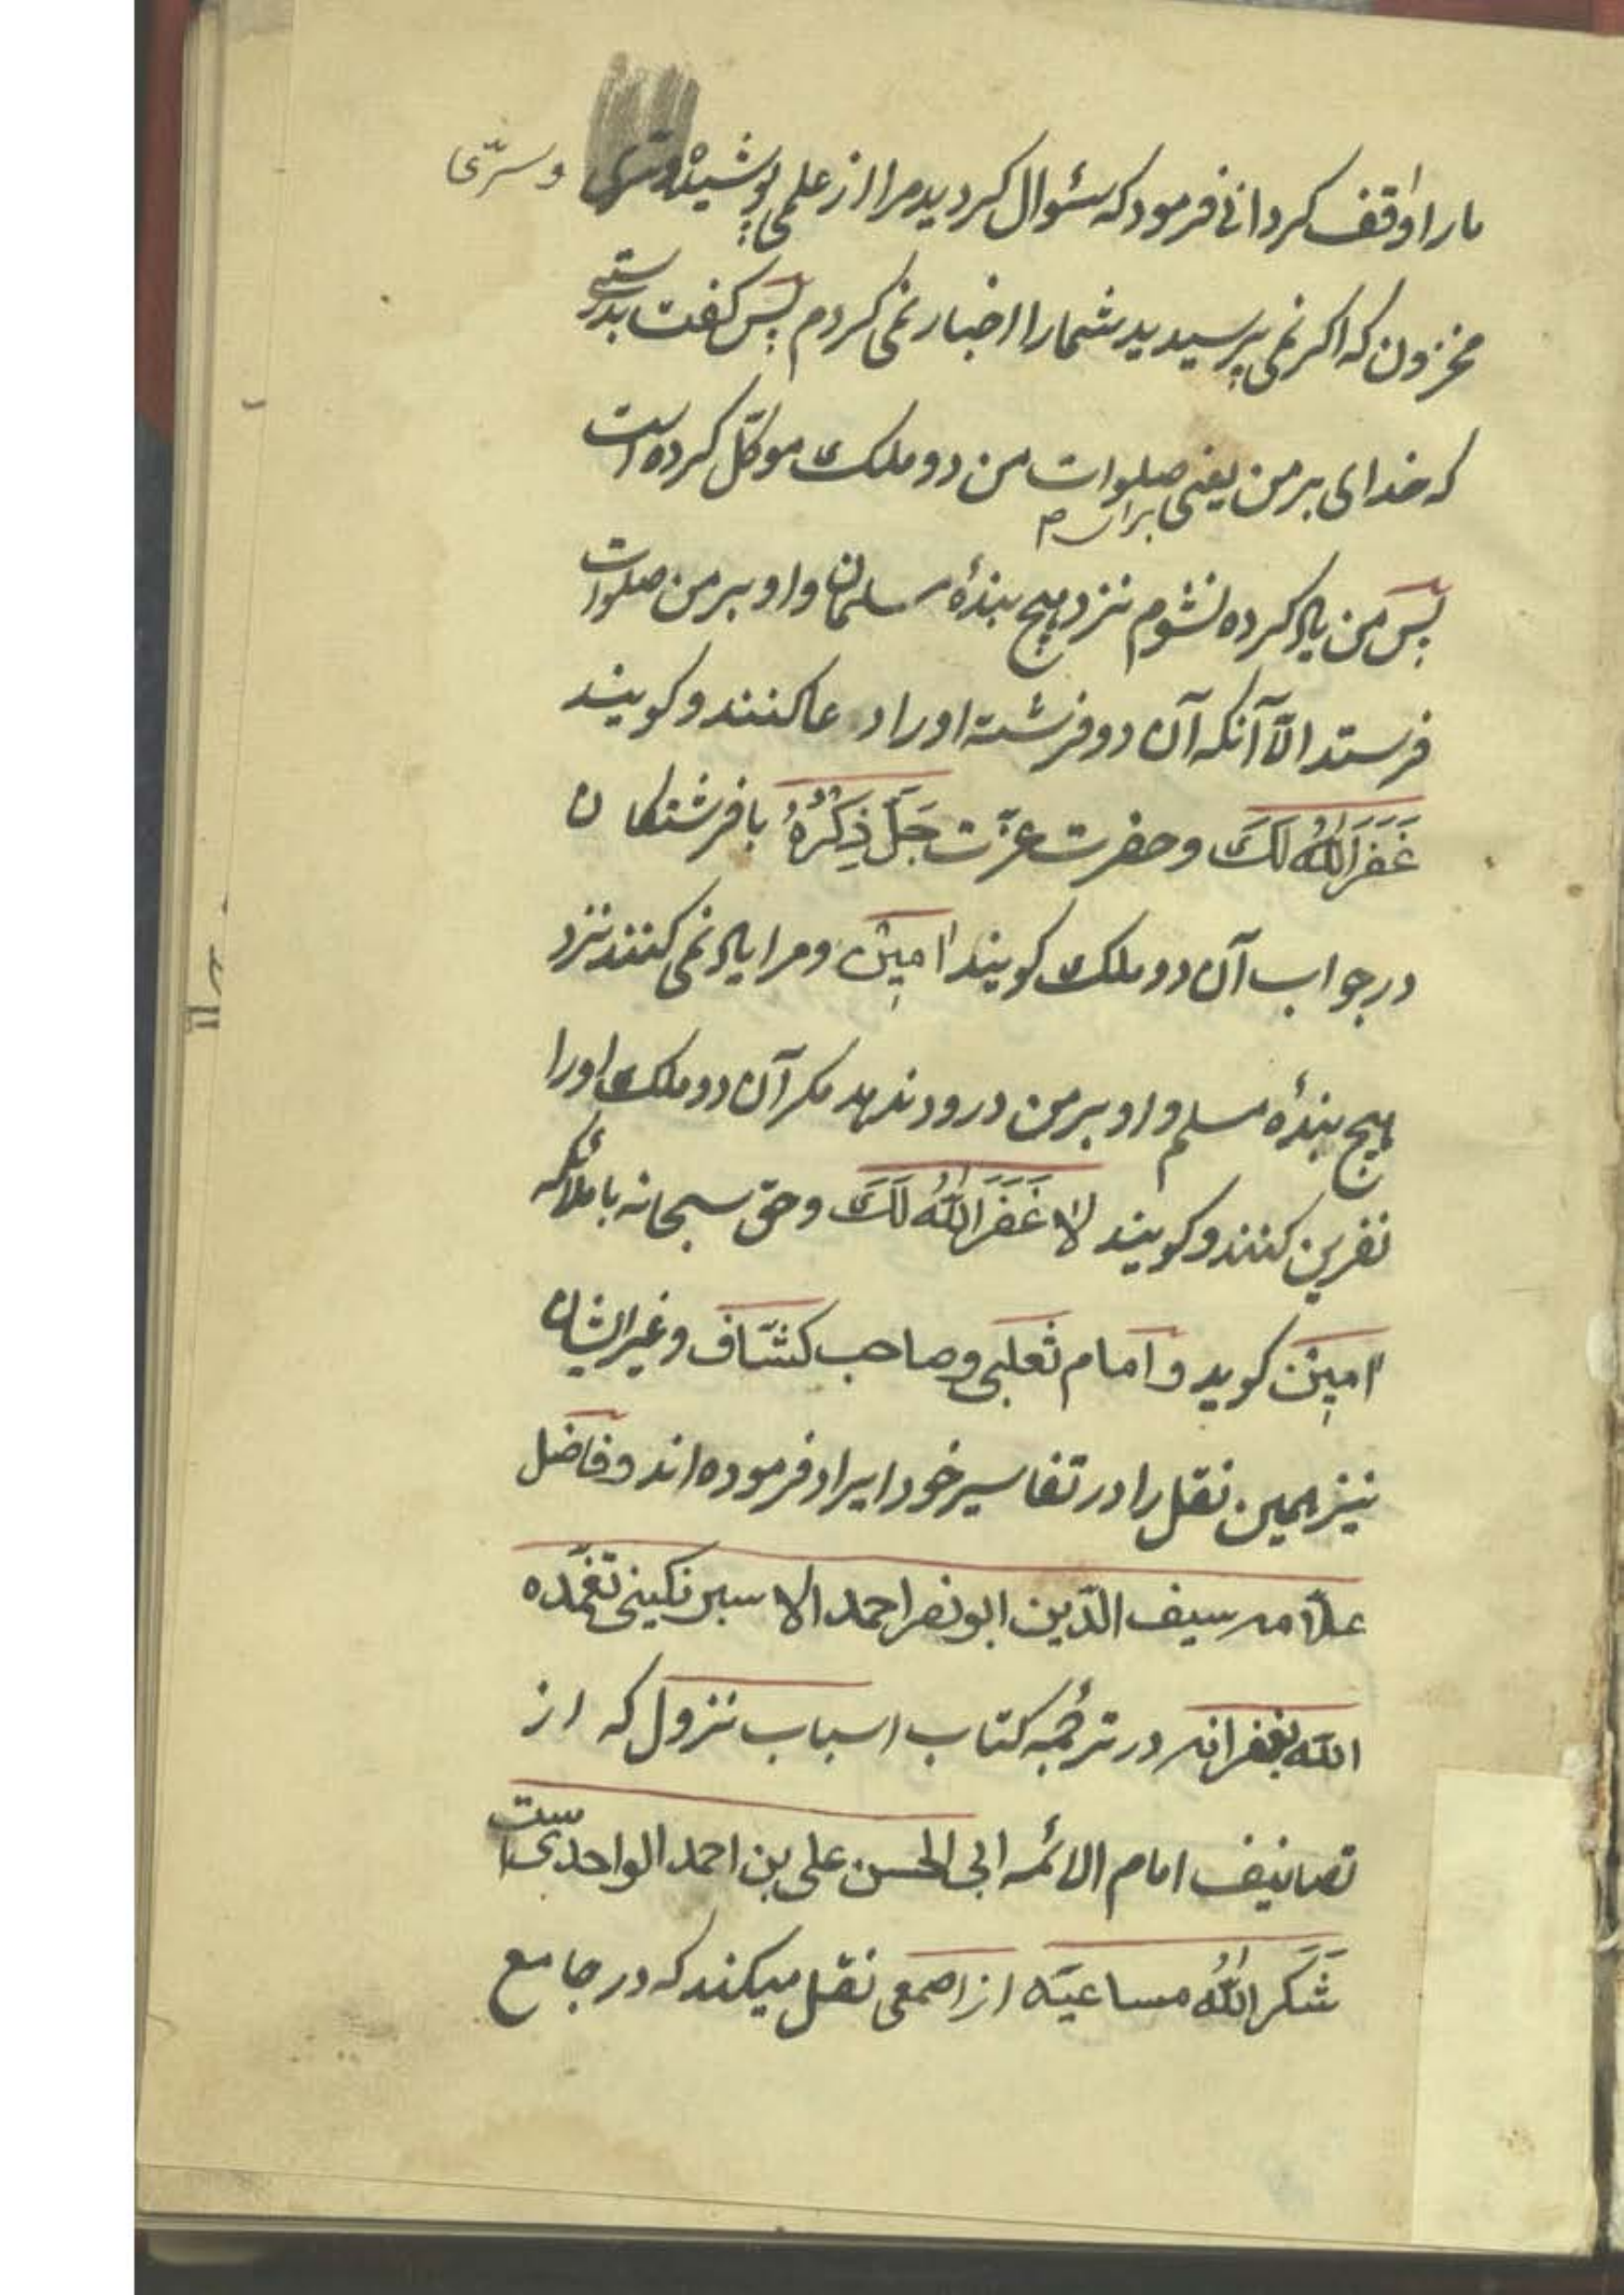 ما را واقف کردانی فرمود که سئوال کردید مرا از علمی پوشیده وسری وسرّی
مخزون که اکر نمی پرسیدید شما را اخبار نمی کردم پس کفت بدرستی
که خدای بر من یعنی برای صلوات من دو ملک موکّل کرده است
پس من یاد کرده نشوم نزد هیچ بندهٔ مسلمان و او بر من صلوات
فرستد الّا آنکه آن دو فرشته او را دعا کنند و کویند
غَفَرَ اللهُ لَکَ و حضرت عزّت جَلَّ ذِکرُهُ با فرشتکان
در جواب آن دو ملک کویند امین و مرا یاد نمی کنند نزد
هیچ بندهٔ مسلم و او بر من درود ندهد مکر آن دو ملک او را
نفرین کنند و کویند لا غَفَرَ اللهُ لَکَ و حق سبحانه با ملائکه
امین کوید و امام ثعلبی و صاحب کشّاف و غیر ایشان
نیز همین نقل را در تفاسیر خود ایراد فرموده اند و فاضل
علّامه سیف الدّین ابونصر احمد الاسبرنکینی تغمّده
الله بغفرانه در ترجمهٔ کتاب اسباب نزول که از
تصانیف امام الائمه ابی الحسن علی بن احمد الواحدی است
شَکَرَ اللهُ مساعیَه از اصمعی نقل میکند که در جامع